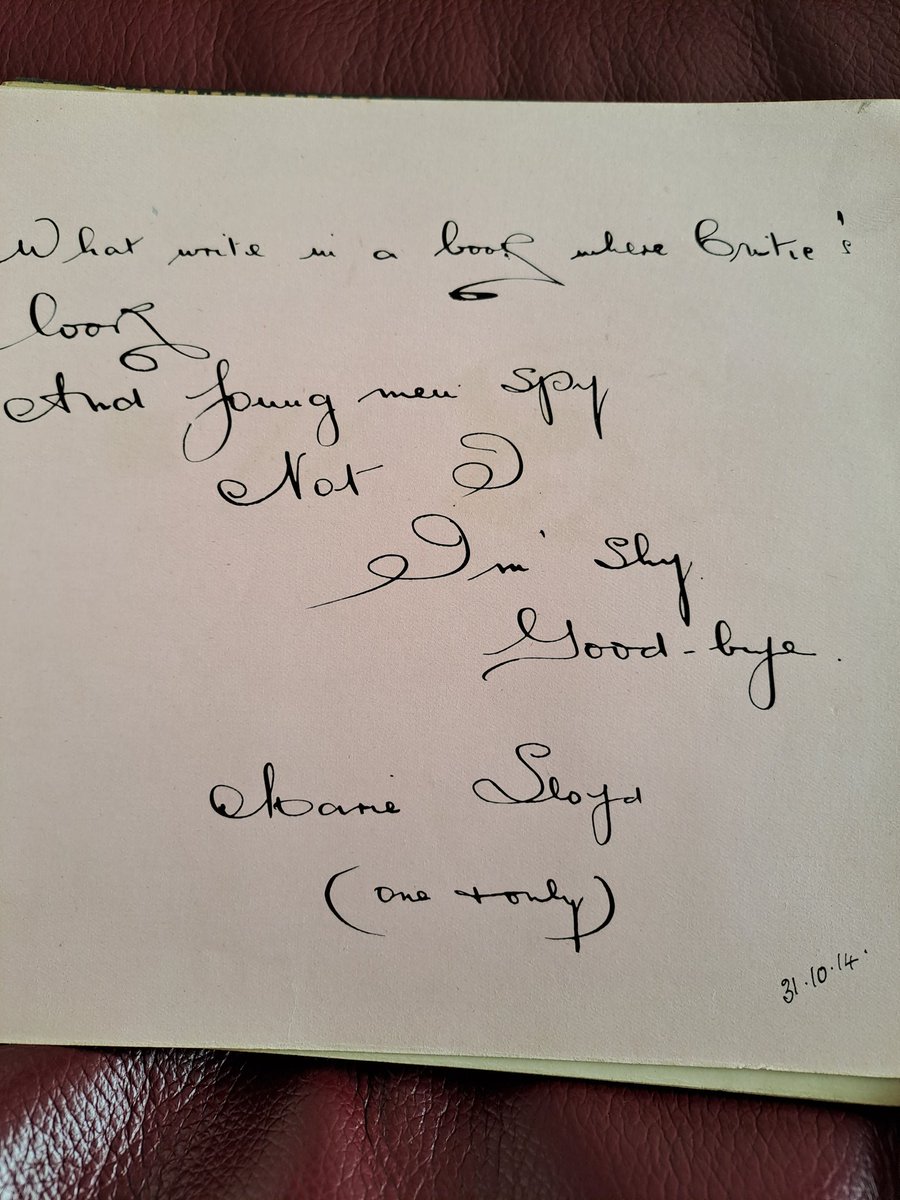 What write in a book where Critic's
look
And young men spy
Not I
I'm shy.
Good-bye.
Marie Lloyd
(one + only)
31.10.14.